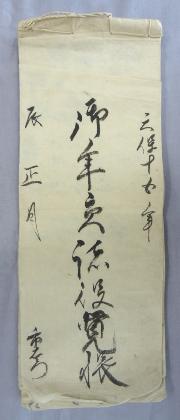 天保十五年
御年貢諸役覚帳
辰 正月